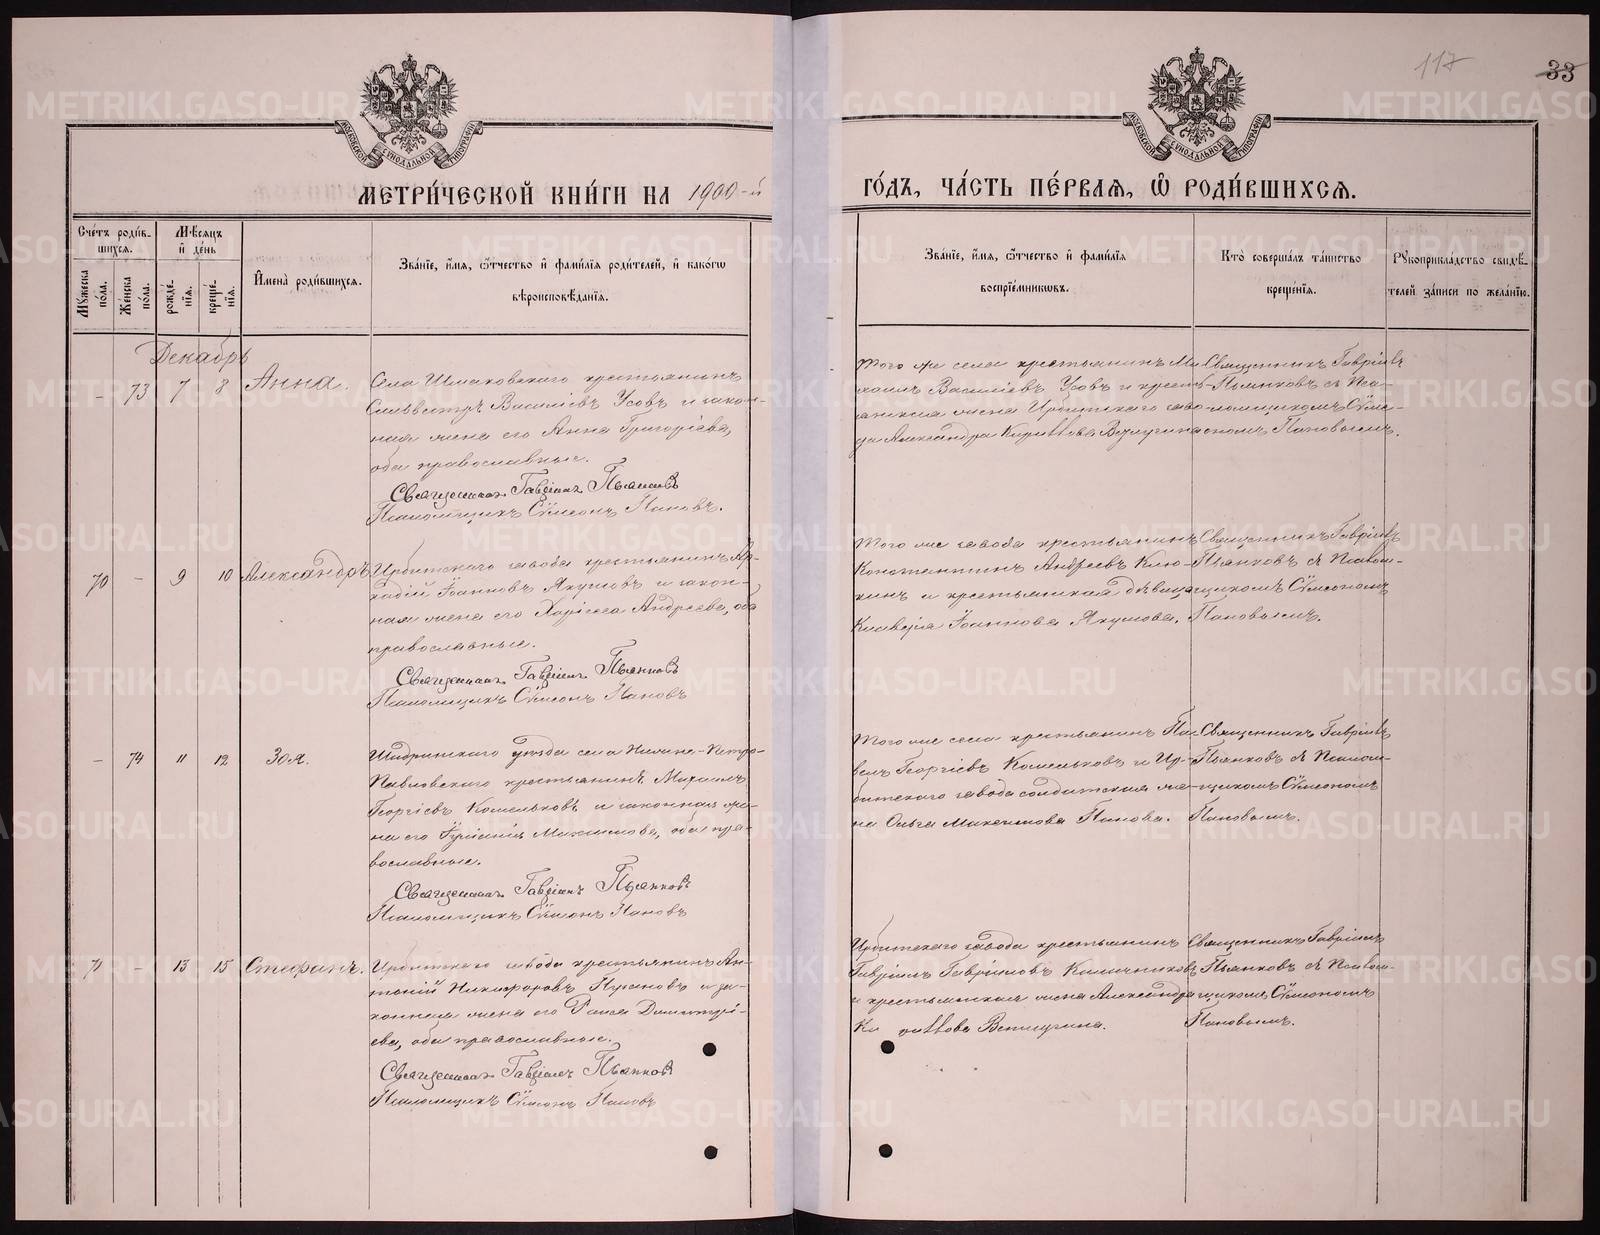 117
33
МЕТРИ́ЧЕСКОЙ КНИ́ГИ НА 1900-й
ГО́ДЪ, ЧА́СТЬ ПЕ́РВАѦ, Ѡ҆ РОДИ́ВШИХСѦ.
Сче́тъ роди́в-
шихсѧ.
Мꙋжеска по́ла.
Же́нска по́ла.
Мѣ́сѧцъ и҆ де́нь
рожде́нїѧ.
креще́нїѧ.
И҆мена̀ роди́вшихсѧ.
Зва́нїе, и҆́мѧ, ѻ҆́тчество и҆ фами́лїѧ роди́телей, и҆ како́гѡ
вѣроисповѣ́данїѧ.
Зва́нїе, и҆́мѧ, ѻ҆́тчество и҆ фами́лїѧ
воспрїе́мникѡвъ.
Кто̀ соверша́лъ та́инство
креще́нїѧ.
Рꙋкоприкла́дство свидѣ́-
телей за́писи по жела́нїю.
Декабрь
- 73 7 8 Анна.
Села Шмаковскаго крестьянинъ
Сильвестръ Василіевъ Усовъ и закон-
ная жена его Анна Григоріева,
оба православные.
Священникъ Гавріилъ Пьянковъ
Псаломщикъ Сѷмеонъ Пановъ.
Того же села крестьянинъ Ми-
хаилъ Василіевъ Усовъ и кресть-
янская жена Ирбитскаго заво-
да Александра
Священникъ Гавріилъ
Пьянковъ съ Пса-
ломщикомъ Сѷме-
ономъ Пановымъ.
70 - 9 10 Александръ
Ирбитскаго завода крестьянинъ Ар-
кадій Іоанновъ Якушовъ и закон-
ная жена его Андреева, оба
православные.
Священникъ Гавріилъ Пьянковъ
Псаломщикъ Сѷмеонъ Пановъ
Того же завода крестьянинъ
Константинъ Андреевъ Клю-
кинъ и крестьянская дѣвица
Клавдія Іоаннова Якушова.
Священникъ Гавріилъ
Пьянковъ съ Псалом-
щикомъ Сѷмеономъ
Пановымъ.
- 74 11 12 Зоя.
Шадринскаго уѣзда села Нижне-Петро-
Павловскаго крестьянинъ Михаилъ
Георгіевъ Комельковъ и законная же-
на его Максимова, оба пра-
вославные.
Священникъ Гавріилъ Пьянковъ
Псаломщикъ Сѷмеонъ Пановъ
Того же села крестьянинъ Па-
велъ Георгіевъ Комельковъ и Ир-
битскаго завода солдатская же-
на Ольга Максимова Панова.
Священникъ Гавріилъ
Пьянковъ съ Псалом-
щикомъ Сѷмеономъ
Пановымъ.
71 - 13 15 Стефанъ.
Ирбитскаго завода крестьянинъ Ан-
тоній Никифоровъ и за-
конная жена его Раиса Димитрі-
ева, оба православные.
Священникъ Гавріилъ Пьянковъ
Псаломщикъ Сѷмеонъ Пановъ
Ирбитскаго завода крестьянинъ
Гавріилъ Гавріиловъ Калачниковъ
и крестьянская жена Александра
Священникъ Гавріилъ
Пьянковъ съ Псалом-
щикомъ Сѷмеономъ
Пановымъ.
METRIKI.GASO-URAL.RU